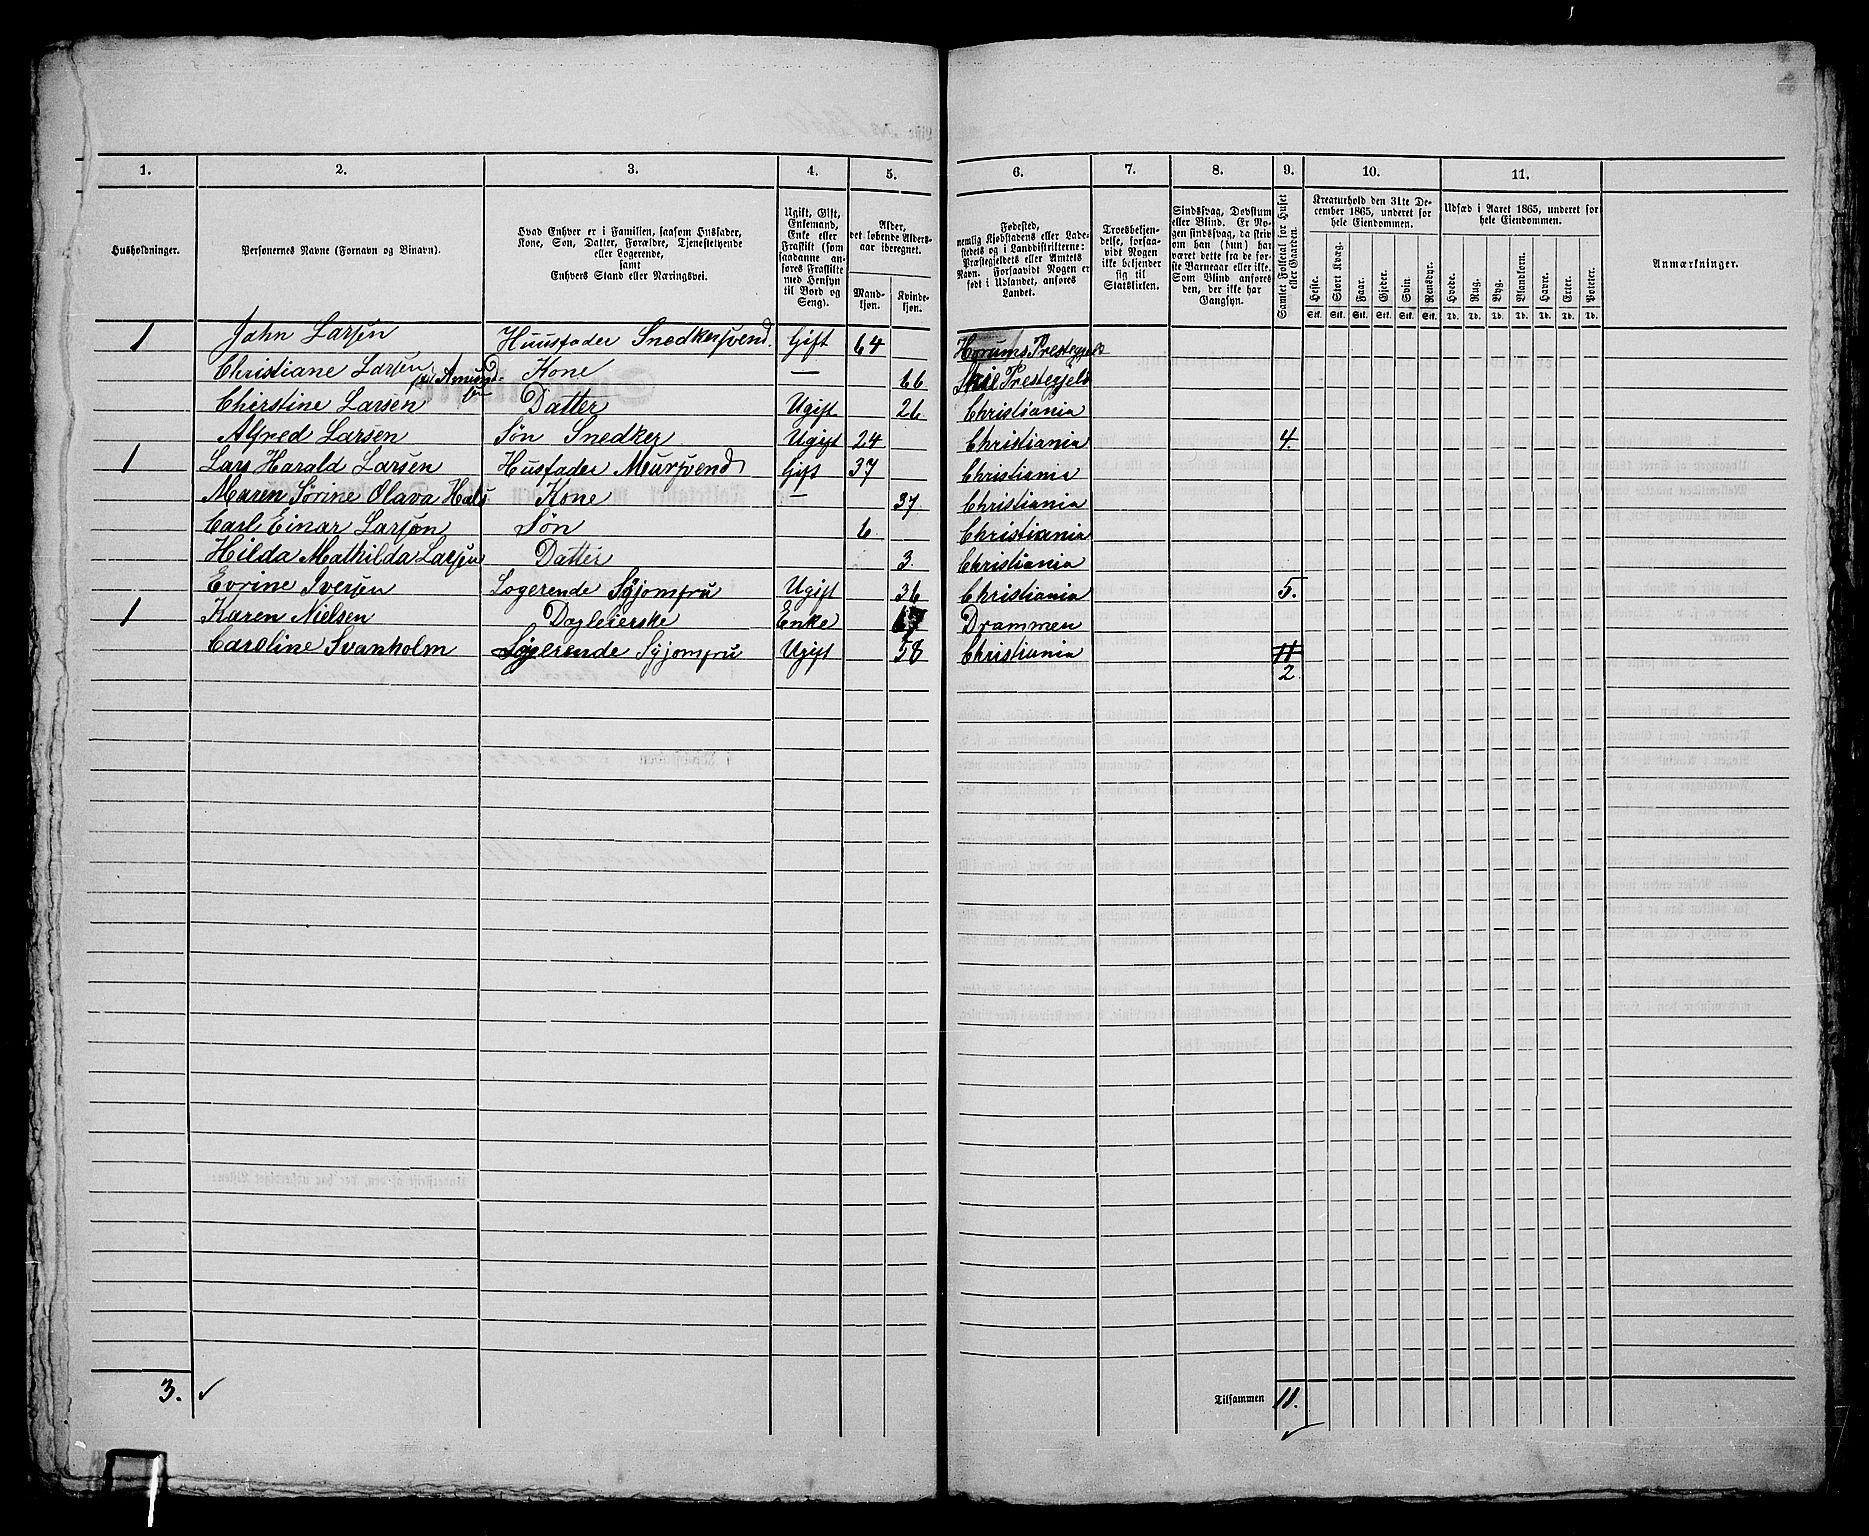 1. 2. 3. 4. 5. 6. 7. 8. 9. 10. 11.
Husholdninger.
Personernes Navne (Fornavn og Binavn).
Hvad Enhver er i Familien, saasom Husfader,
Kone, Søn, Datter, Forældre, Tjenestetyende
eller Logerende,
samt
Enhvers Stand eller Næringsvei.
Ugift, Gift,
Enkemand,
Enke eller
Fraskilt (som
saadanne an-
føres Fraskilte
med Hensyn
til Bord og
Seng).
Alder,
det løbende Alders-
aar iberegnet.
Mand-
kjøn.
Kvinde-
kjøn.
Fødested,
nemlig Kjøbstadens eller Lade-
stedets og i Landdistrikterne:
Præstegjeldets eller Amtets
Navn. Forsaavidt Nogen er
født i Udlandet, anføres
Landet.
Troesbekjen-
delse, forsaa-
vidt Nogen
ikke bekjender
sig til
Statskirken.
Sindssvag, Døvstum
eller Blind. Er No-
gen sindssvag, da skriv
om han (hun) har
været dette fra de før-
ste Barneaar eller ikke.
Som Blind anføres
den, der ikke har
Gangsyn.
Samlet Folketal for Huset
eller Gaarden.
Kreaturhold den 31te De-
cember 1865, underet for
hele Eiendommen.
Heste. Stort Kvæg. Faar. Gjeder. Svin. Rensdyr.
Stk. Stk. Stk. Stk. Stk. Stk.
Udsæd i Aaret 1865, underet for
hele Eiendommen.
Hvede. Rug. Byg. Blandkorn. Havre. Erter. Poteter.
Td. Td. Td. Td. Td. Td. Td.
Anmærkninger.
1 John Larsen Huusfader Snedkersvend. Gift 64 Prestegjeld
Christiane Larsen Kone — 66 Prestegjeld
Chirstine Larsen Datter Ugift 26 Christiania
Alfred Larsen Søn Snedker Ugift 24 Christiania 4.
1 Lars Harald Larsen Husfader Meursvend Gift 37 Christiania
Maren Sørine Olava Hals. Kone — 37. Christiania
Carl Einar Larsen Søn 6. Christiania
Hilda Mathilda Larsen Datter 3. Christiania
Evrine Iversen Logerende Syjomfru Ugift 36 Christiania 5.
1 Karen Nielsen Dagleierske Enke Drammen
Caroline Svanholm Logerende Syjomfru Ugift 58 Christiania 11
2
3.
Tilsammen 11.